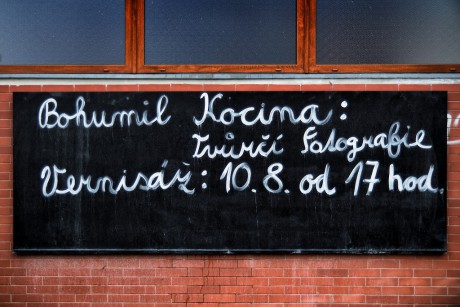 Bohumil Kocina:
Tvůrčí Fotografie
Vernisáž: 10. 8. od 17 hod.